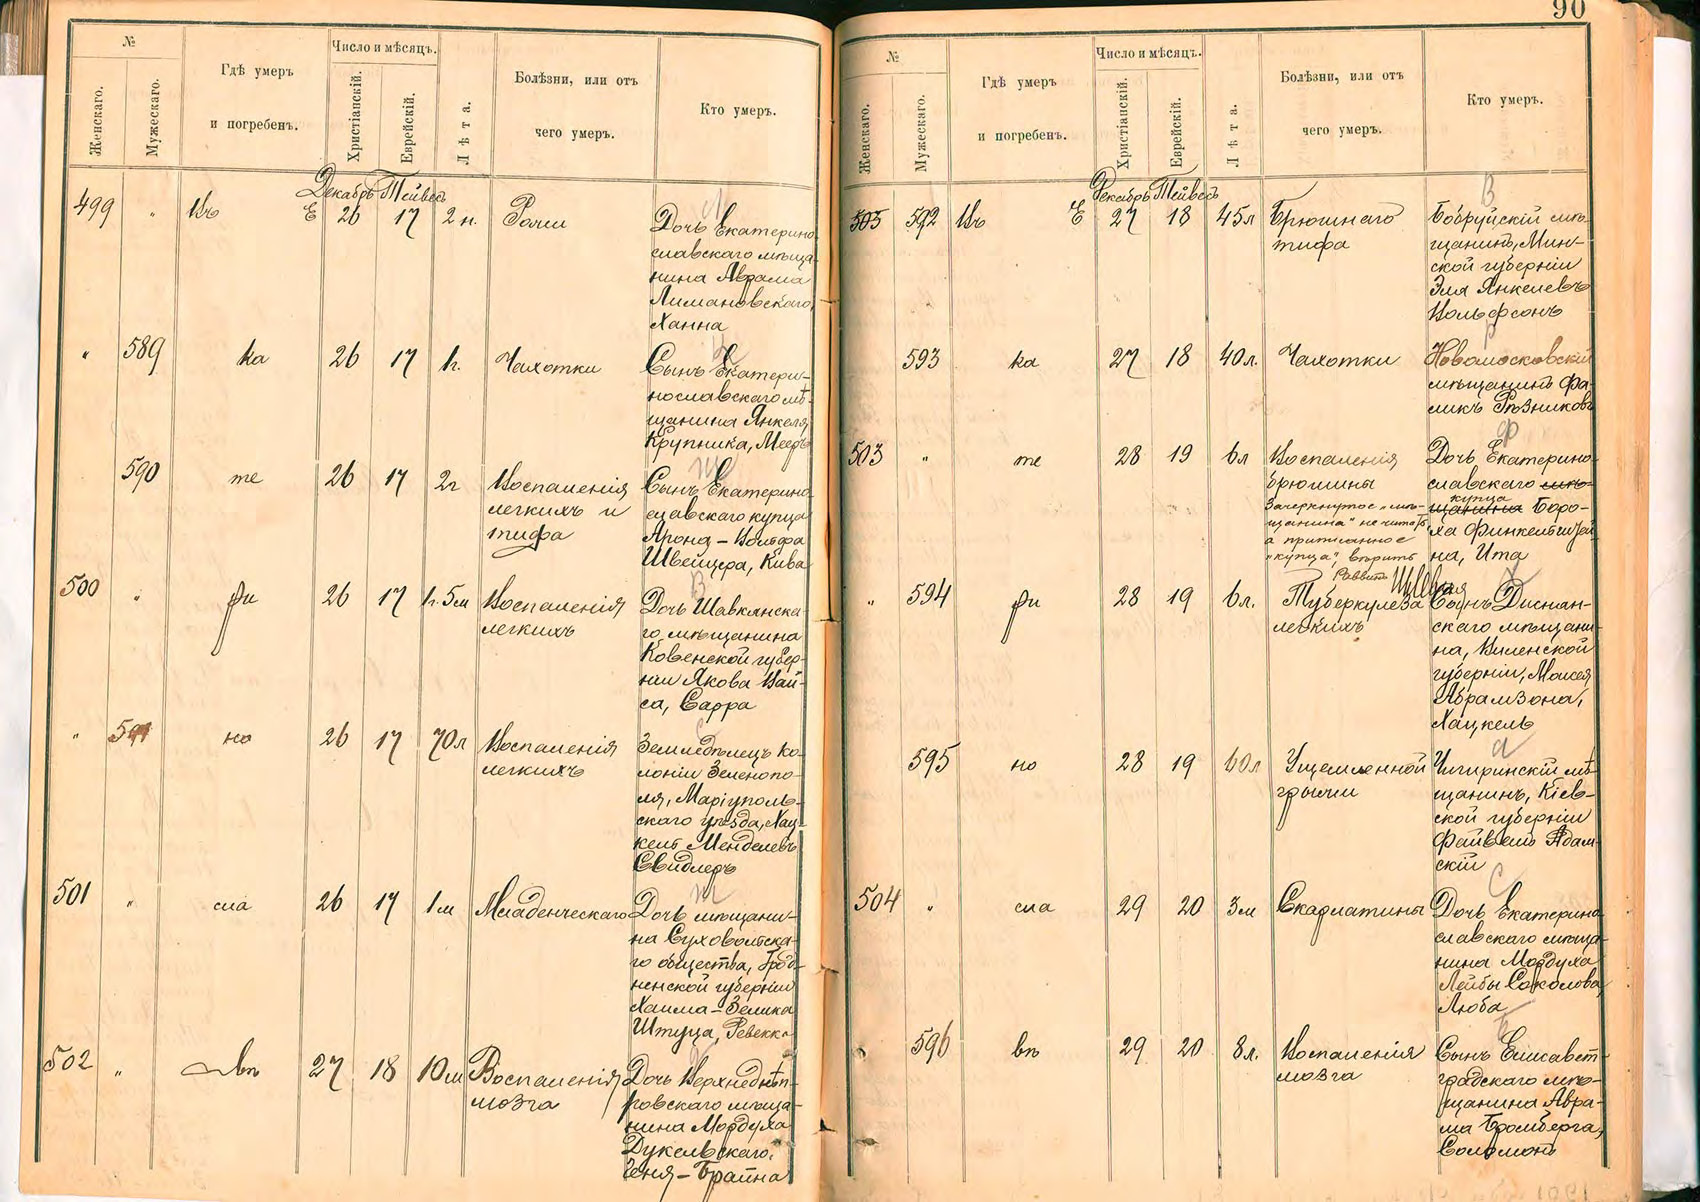 90
№
Число и мѣсяцъ.
Женскаго.
Мужескаго.
Гдѣ умеръ
и погребенъ.
Христіанскій.
Еврейскій.
Лѣта.
Болѣзни, или отъ
чего умеръ.
Кто умеръ.
Декабрь Тейвесъ
499 " Въ Е 26 17 2 н. Рожи
Дочь Екатерино-
славскаго мѣща-
нина Аврама
Лимановскаго,
Ханна
" 589 ка 26 17 1г. Чахотки
Сынъ Екатери-
нославскаго мѣ-
щанина Янкеля
Крупника, Мееръ
590 те 26 17 2г Воспаленія
легкихъ и
тифа
Сынъ Екатерино-
славскаго купца
Арона-Вольфа
Швейцера, Кива
500 " ри 26 17 1г.5м Воспаленія
легкихъ
Дочь Шавлянска-
го мѣщанина
Ковенской губер-
ніи Якова Вай-
са, Сарра
" 591 но 26 17 70л Воспаленія
легкихъ
Земледѣлецъ ко-
лоніи Зеленопо-
ля, Маріуполь-
скаго уѣзда, Хац-
кель Менделевъ
Свидлеръ
501 " сла 26 17 1м Младенческаго
Дочь мѣщани-
на Суховольска-
го общества, Грод-
ненской губерніи
Хаима-Зелика
Штуца, Ревекка
502 " вѣ 27 18 10м Воспаленія
мозга
Дочь Верхнеднѣп-
ровскаго мѣща-
нина Мордуха
Дукельскаго,
Геня-Брайна
№
Число и мѣсяцъ.
Женскаго.
Мужескаго.
Гдѣ умеръ
и погребенъ.
Христіанскій.
Еврейскій.
Лѣта.
Болѣзни, или отъ
чего умеръ.
Кто умеръ.
Декабрь Тейвесъ
503 592 Въ Е 27 18 45л Брюшнаго
тифа
Бобруйскій мѣ-
щанинъ, Мин-
ской губерніи
Эля Янкелевъ
Вольфсонъ
593 ка 27 18 40л. Чахотки
Новомосковскій
мѣщанинъ Фа-
ликъ Рѣзниковъ
503 " те 28 19 6л Воспаленія
брюшины
Зачеркнутое "мѣ-
щанина" не читать
а приписанное
"купца", вѣрить
Раввинъ
Дочь Екатерино-
славскаго мѣ-
купца
щанина Боро-
ха Финкельштей-
на, Ита
" 594 ри 28 19 6л. Туберкулеза
легкихъ
Сынъ Диснян-
скаго мѣщани-
на, Виленской
губерніи, Моисея
Абрамзона,
Хацкель
595 но 28 19 60л Ущемленной
грыжи
Чигиринскій мѣ-
щанинъ, Кіев-
ской губерніи
Файвель Адам-
скій
504 " сла 29 20 3м Скарлатины
Дочь Екатерино-
славскаго мѣща-
нина Мордуха
Лейбы Соколова,
Люба
596 вѣ 29 20 8л. Воспаленія
мозга
Сынъ Елисавет-
градскаго мѣ-
щанина Авра-
ма Бромберга,
Соломонъ